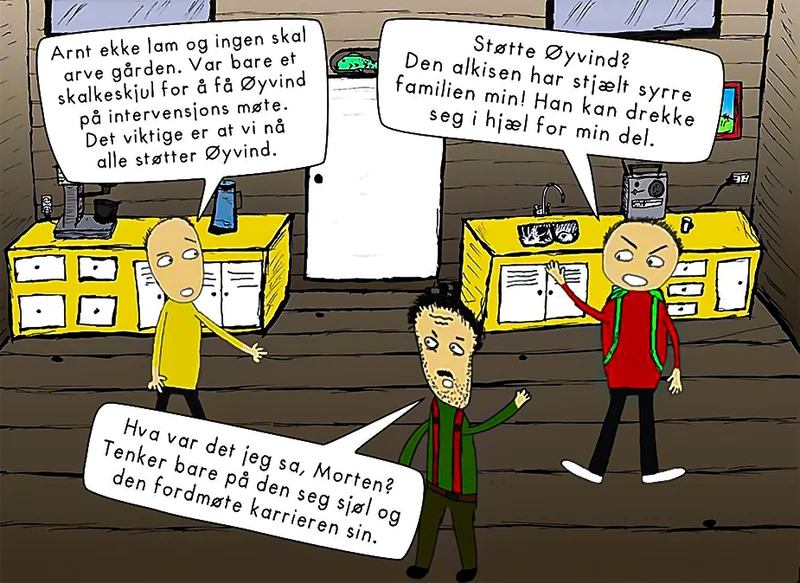 Arnt ekke lam og ingen skal
arve gården. Var bare et
skalkeskjul for å få Øyvind
på intervensjons møte.
Det viktige er at vi nå
alle støtter Øyvind.
Støtte Øyvind?
Den alkisen har stjælt syrre
familien min! Han kan drekke
seg i hjæl for min del.
Hva var det jeg sa, Morten?
Tenker bare på den seg sjøl og
den fordmøte karrieren sin.